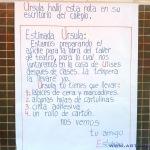 Úrsula halló esta nota en su
escritorio del colegio.
Estimada Úrsula:
Estamos preparando el
afiche para la obra del taller
de teatro, para lo cual nos
juntaremos en la casa de Ulises
después de clases. La tempera
la llevaré yo.
Úrsula tú tienes que llevar:
1. lápices de cera y marcadores.
2. algunas hojas de cartulinas
3. cinta adhesiva
4. un rollo de cartón.
nos vemos
tu amigo